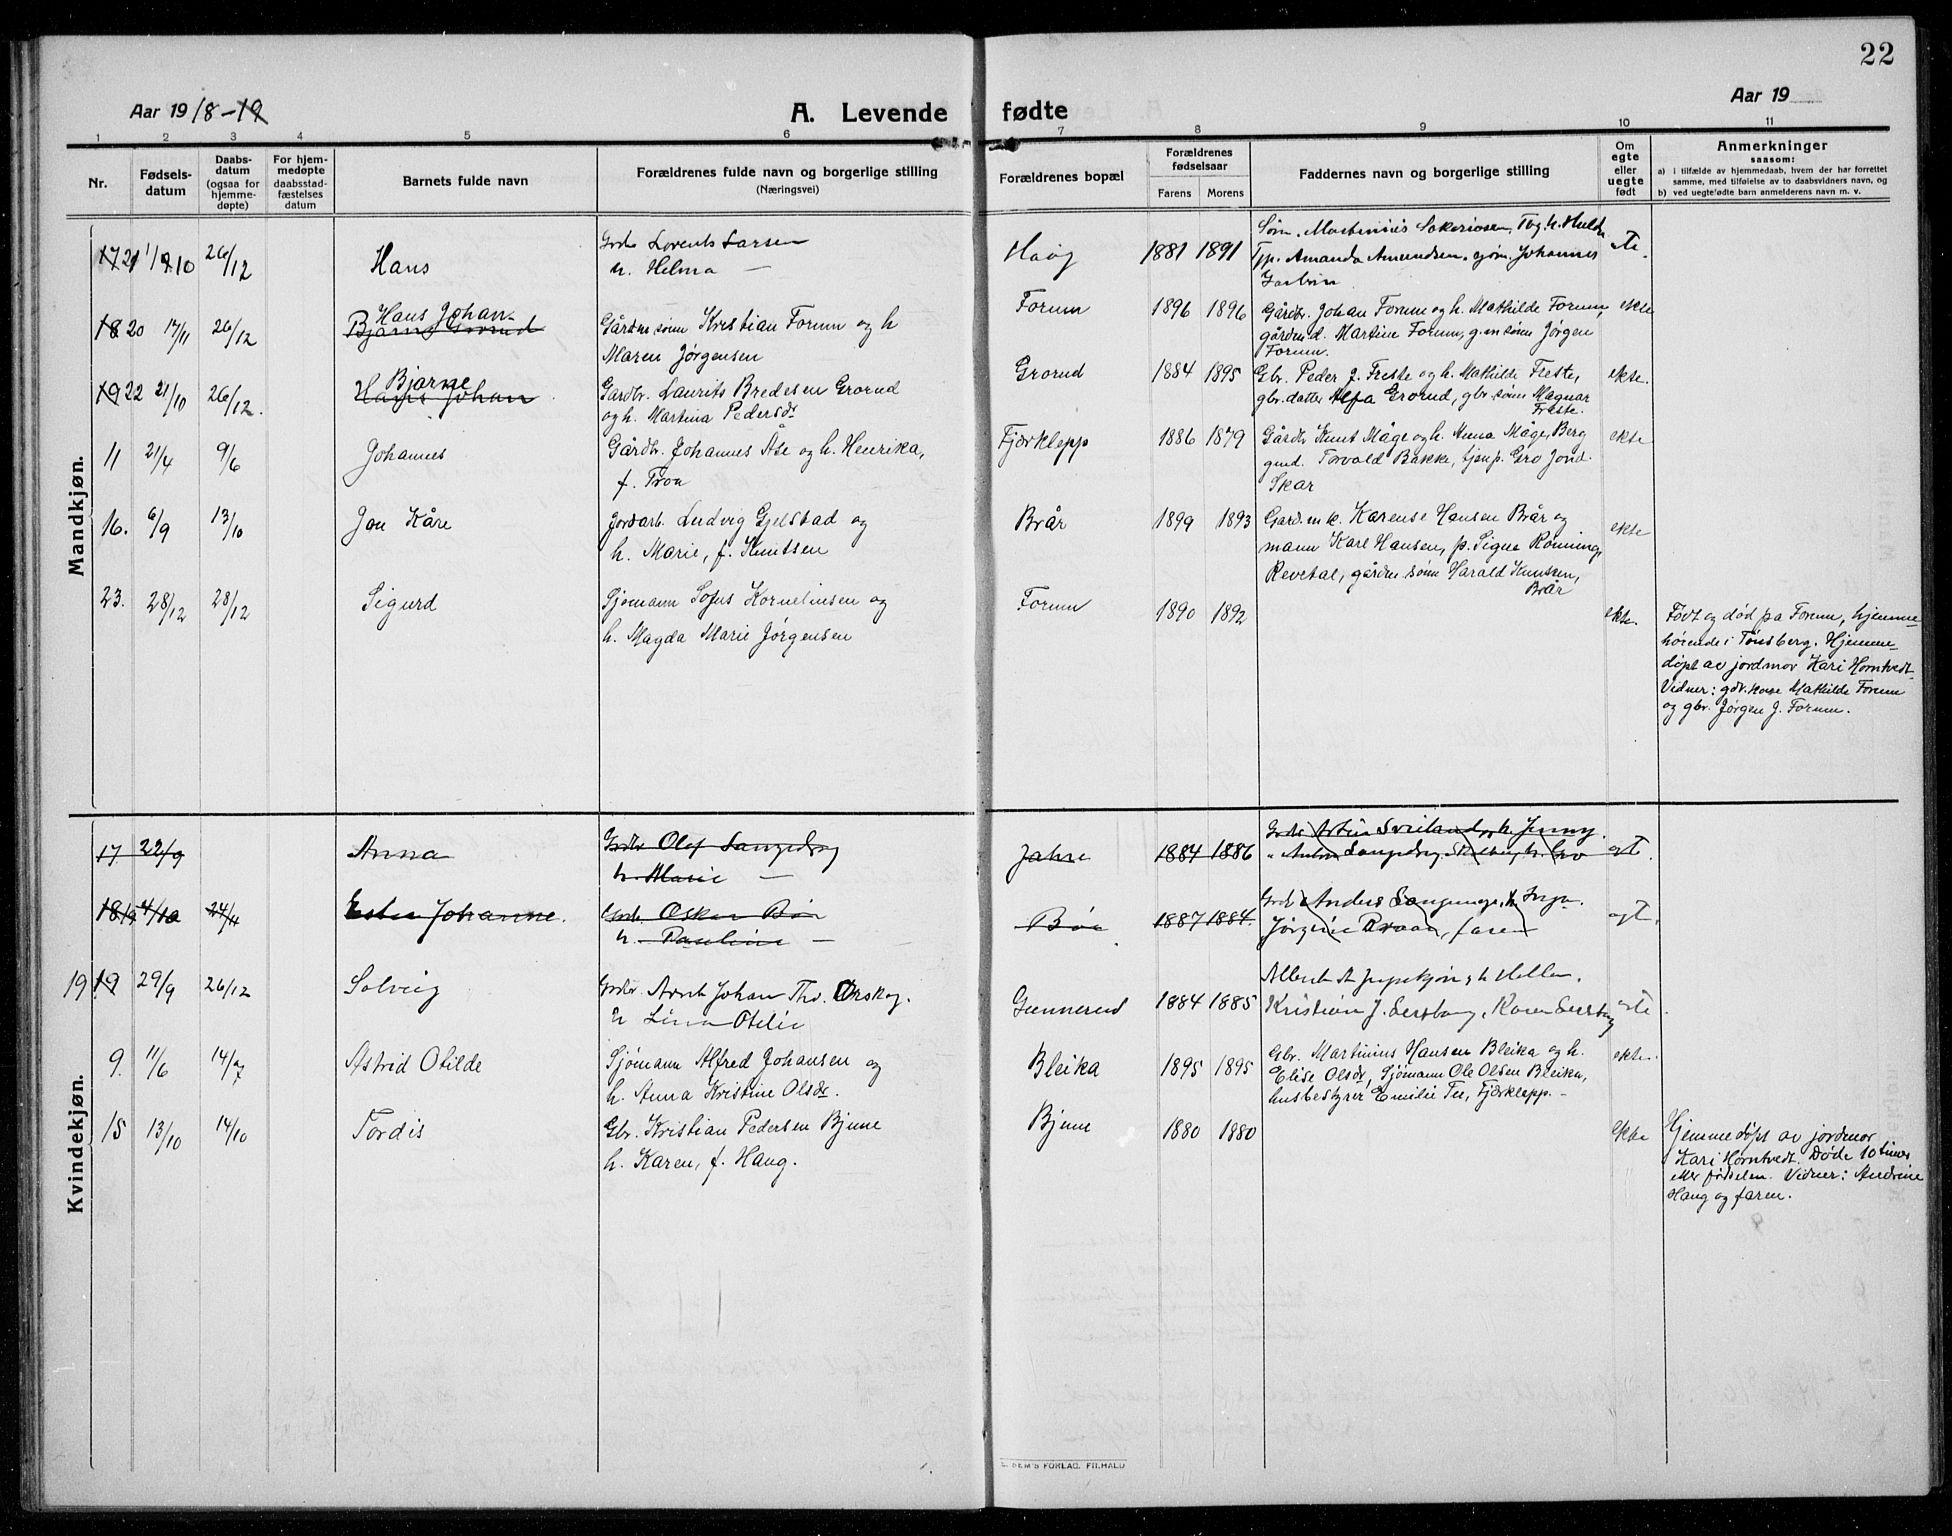 22
Aar 1918-19
A. Levende fødte
Aar 19
1 2 3 4 5 6 7 8 9 10 11
Nr.
Fødsels-
datum
Daabs-
datum
(ogsaa for
hjemme-
døpte)
For hjem-
medøpte
daabsstad-
fæstelses
datum
Barnets fulde navn
Forældrenes fulde navn og borgerlige stilling
(Næringsvei)
Forældrenes bopæl
Forældrenes
fødselsaar
Farens Morens
Faddernes navn og borgerlige stilling
Om
egte
eller
uegte
født
Anmerkninger
saasom:
a) i tilfælde av hjemmedaab, hvem der har forrettet
samme, med tilføielse av to daabsvidners navn, og
b) ved uegtefødte barn anmelderens navn m. v.
Mandkjøn.
17 21 1/10 26/12 Hans
Lorents Larsen
h. Helma —
Haug 1881 1891
Amanda Amundsen, Johannes
18 20 17/11 26/12 Hans Johan
Bjarne Grorud
Gårdm.sønn Kristian Forum og h
Maren Jørgensen
Forum 1896 1896
Gårdbr. Johan Forum og h. Mathilde Forum,
gårdm.d. Martine Forum, g.m sønn Jørgen
Forum.
ekte
19 22 21/10 26/12. Bjarne
Hans Johan
Gardbr. Laurits Bredesen Grorud
og h. Martina Pedersdr
Grorud 1884 1895
Gbr. Peder J. Freste og h. Mathilde Freste,
gbr.datter Alfa Grorud, gbr.sønn Magnar
Freste.
ekte.
11 21/4 9/6 Johannes
Gårdbr. Johannes Åse og h. Henrika,
f. Tron
Fjærklepp 1886 1879
Gårdbr Knut Måge og h. Anna Måge, Berg
gmd. Torvald Bakke, tjenp. Gro Jond.
Skar
ekte
16. 6/9 13/10 Jon Kåre
Jordarb. Ludvig Gjelstad og
h. Marie, f. Knutsen
Brår 1899 1893
Gard.m.k. Karense Hansen Brår og
mann Karl Hansen, p. Signe Rønning,
Revetal, gårdm.sønn Harald Knutsen,
Brår
ekte
23. 28/12 28/12 Sigurd
Sjømann Sofus Kornelinsen og
h. Magda Marie Jørgensen
Forum 1890 1892
ekte.
Født og død på Forum, hjemme-
hørende i Tønsberg. Hjemme-
døpt av jordmor Kari Horntvedt.
Vidner: gdr.kone Mathilde Forum
og gbr. Jørgen J. Forum.
Kvindekjøn.
17 22/9 Anna
Olof Langedrag
h. Marie —
Jahre 1884 1886
18 4/10 24/11 Ester Johanne.
Oskar Bøe
h. Pauline —
Bøe 1887 1884.
19 19 29/9 26/12 Solveig
Arnt Johan Thv. Orskog.
h Lina Otelie
Gunnerud 1884 1885
9. 11/6 14/7 Astrid Otilde
Sjømann Alfred Johansen og
h. Anna Kristine Olsdr.
Bleika 1895 1895
Gbr. Martinius Hansen Bleika og h.
Elise Olsdr, Sjømann Ole Olsen Bleika,
husbestyrer Emilie Tu, Fjærklepp. -
ekte.
15 13/10 14/10 Tordis
Gbr. Kristian Pedersen Bjune
h. Karen, f. Haug.
Bjune 1880 1880
ekte
Hjemmedøpt av jordmor
Kari Horntvedt. Døde 10 timer
etter fødselen. Vidner: Andrine
Haug og faren.
SEM'S FORLAG. FR.HALD